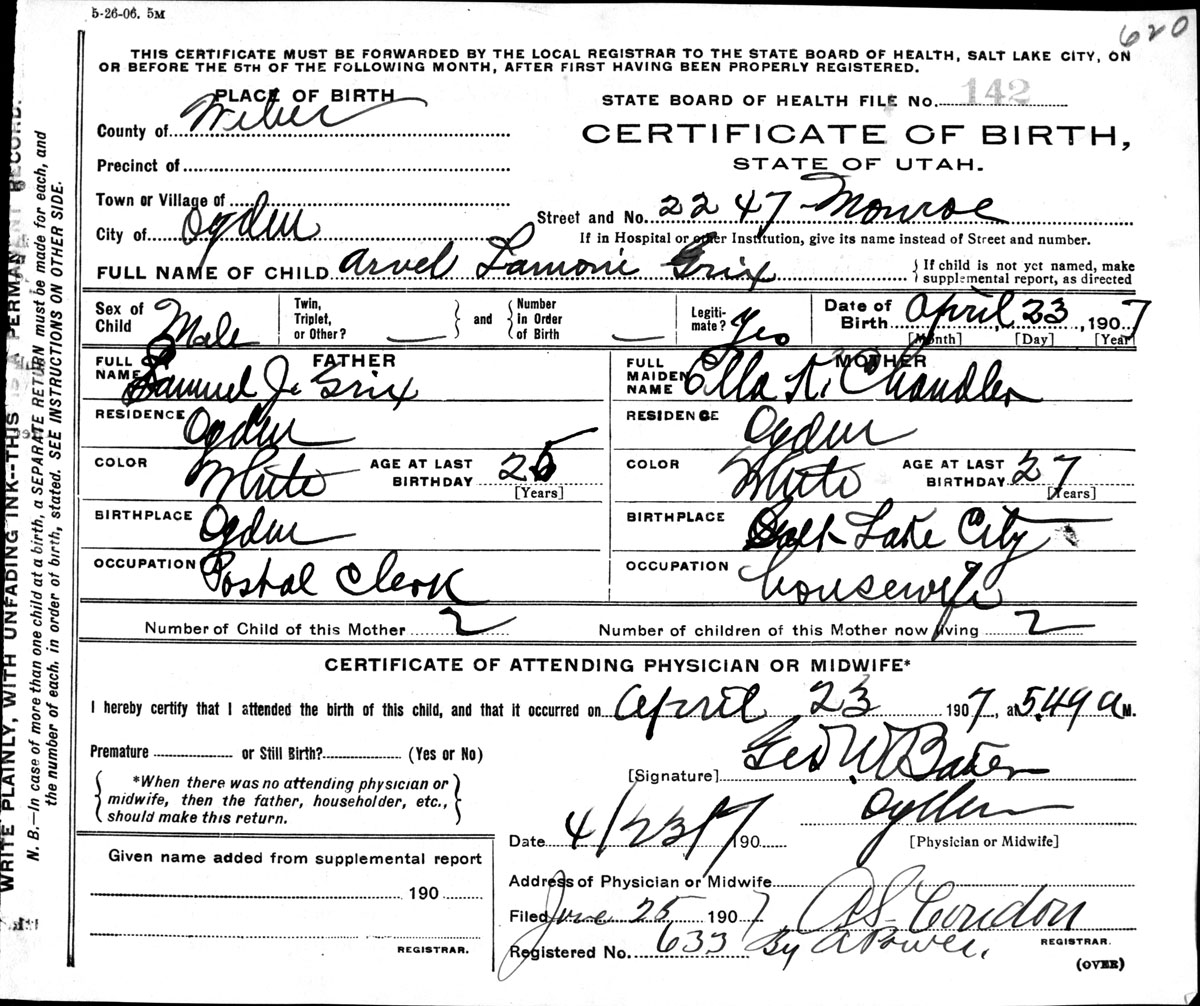 5-26-06. 5M
620
THIS CERTIFICATE MUST BE FORWARDED BY THE LOCAL REGISTRAR TO THE STATE BOARD OF HEALTH, SALT LAKE CITY, ON
OR BEFORE THE 5TH OF THE FOLLOWING MONTH, AFTER FIRST HAVING BEEN PROPERLY REGISTERED.
PLACE OF BIRTH
STATE BOARD OF HEALTH FILE No. 142
County of Weber
CERTIFICATE OF BIRTH,
Precinct of
STATE OF UTAH.
Town or Village of
Street and No. 2247 Monroe
City of Ogden
If in Hospital or other Institution, give its name instead of Street and number.
FULL NAME OF CHILD Arvel Lamoni Grix
If child is not yet named, make
supplemental report, as directed
Sex of Child Male
Twin, Triplet, or Other?
and
Number in Order of Birth
Legiti-mate? Yes
Date of Birth April 23, 1907
[Month] [Day] [Year]
FATHER
MOTHER
FULL NAME Samuel J. Grix
FULL MAIDEN NAME Ella Chandler
RESIDENCE Ogden
RESIDENCE Ogden
COLOR White
AGE AT LAST BIRTHDAY 25
[Years]
COLOR White
AGE AT LAST BIRTHDAY 27
[Years]
BIRTHPLACE Ogden
BIRTHPLACE Salt Lake City
OCCUPATION Postal Clerk
OCCUPATION housewife
Number of Child of this Mother 2
Number of children of this Mother now living 2
CERTIFICATE OF ATTENDING PHYSICIAN OR MIDWIFE*
I hereby certify that I attended the birth of this child, and that it occurred on April 23 1907, at 5.49 a M.
Premature or Still Birth? (Yes or No)
[Signature] Geo W Baker
*When there was no attending physician or
midwife, then the father, householder, etc.,
should make this return.
Ogden
Date 4/23/7 190
[Physician or Midwife]
Given name added from supplemental report
190
REGISTRAR.
Address of Physician or Midwife
Filed June 25 1907
A S Condon
REGISTRAR.
Registered No. 633
By
(OVER)
WRITE PLAINLY, WITH UNFADING INK--THIS IS A PERMANENT RECORD.
N. B.—In case of more than one child at a birth, a SEPARATE RETURN must be made for each, and
the number of each, in order of birth, stated. SEE INSTRUCTIONS ON OTHER SIDE.